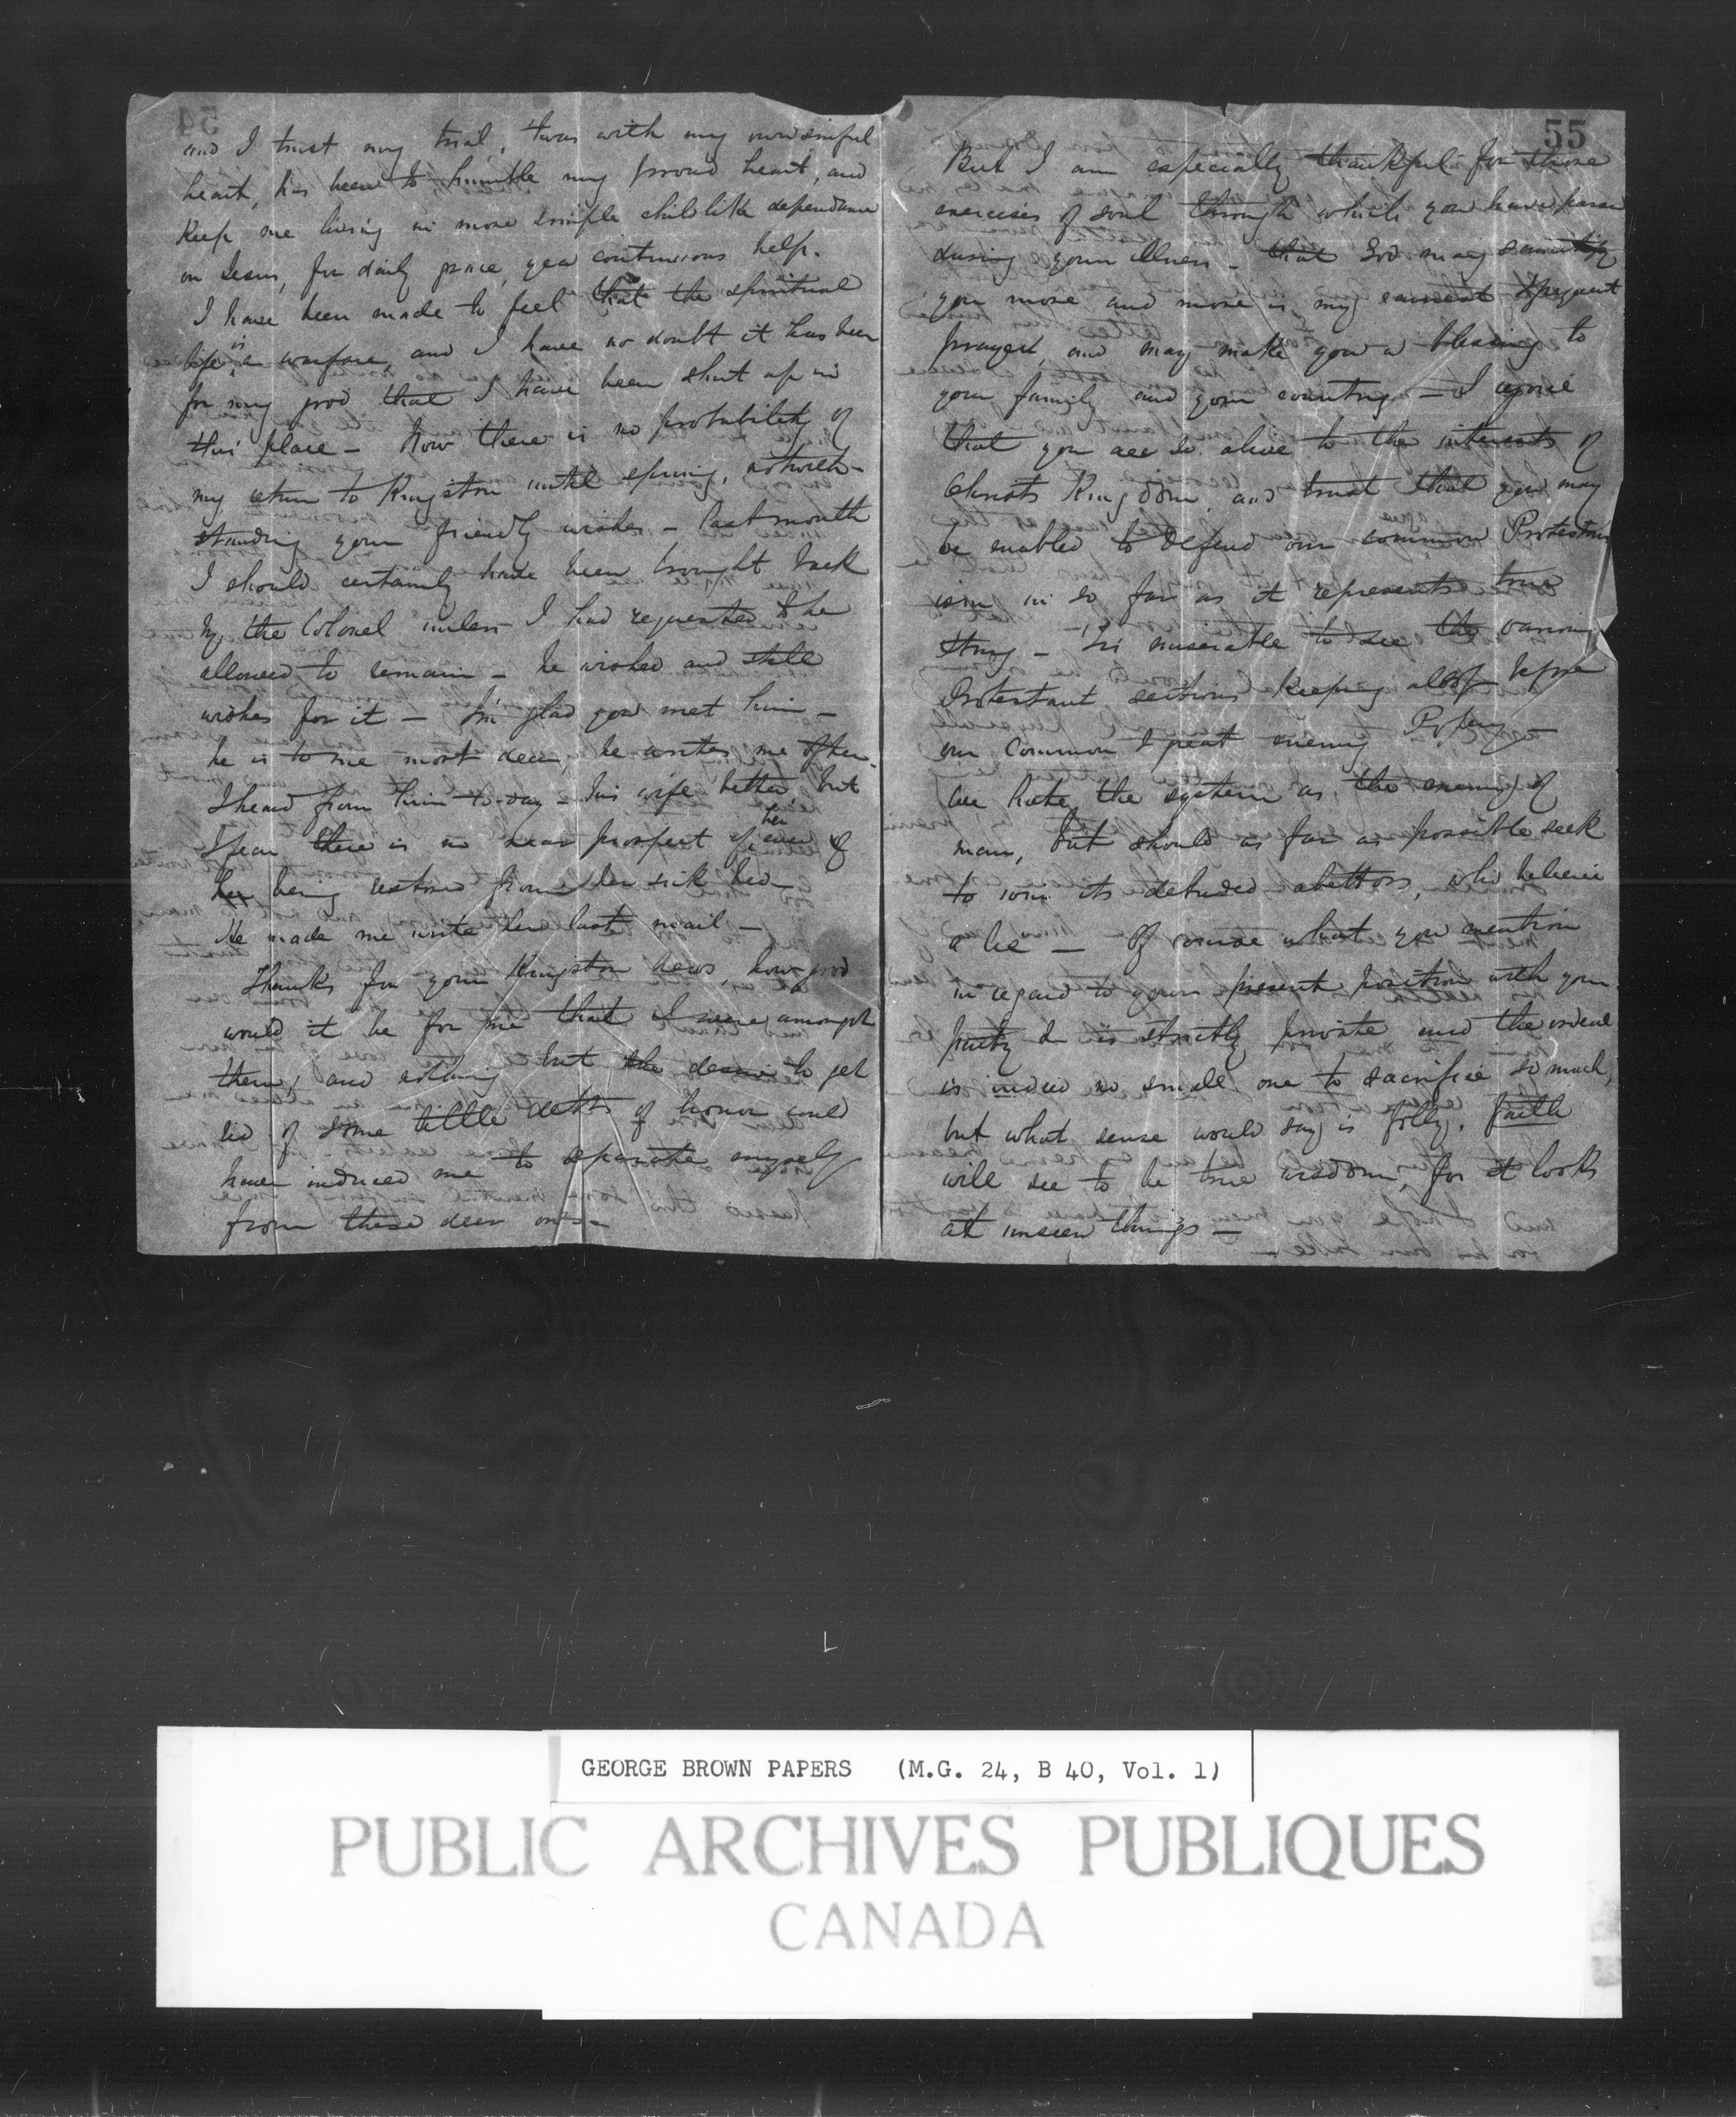 and I trust my trial, twas with my own sinful
heart, has been to humble my proud heart, and
keep me living in more simple childlike dependance
on Jesus, for daily grace, yea continuous help.
I have been made to feel that the spiritual
life is a warfare, and I have no doubt it has been
for my good that I have been shut up in
this place - Now there is no probability of
my return to Kingston until spring, notwith-
standing your friendly wishes - last month
I should certainly have been brought back
by the Colonel unless I had requested to be
allowed to remain - he wished and still
wishes for it - I'm glad you met him -
he is to me most dear, he writes me often.
I heard from him to-day - his wife better, but
I fear there is no near prospect of her &
her being restored from her sick bed -
He made me write her last mail -
Thanks for your Kingston news, how good
would it be for me that I were amongst
them, and nothing but the desire to get
rid of some little debts of honor could
have induced me to separate myself
from these dear ones -
55
But I am especially thankful for those
exercises of soul through which you have passed
during your illness - that God may sanctify
you more and more is my earnest & frequent
prayer, and may make you a blessing to
your family and your country - I rejoice
that you are so alive to the interests of
Christs Kingdom, and trust that you may
be enabled to defend our common Protestant
ism in so far as it represents true
thing - 'Tis miserable to see the various
Protestant sections keeping aloof before
our common & great enemy Popery -
We hate the system as the enemy of
man, but should as far as possible seek
to win its deluded abettors, who believe
a lie - Of course what you mention
in regard to your present position with your
party is strictly private and the ordeal
is indeed no small one to sacrifice so much,
but what sense would say is folly, faith
will see to be true wisdom, for it looks
at unseen things -
GEORGE BROWN PAPERS (M.G. 24, B 40, Vol. 1)
PUBLIC ARCHIVES PUBLIQUES
CANADA